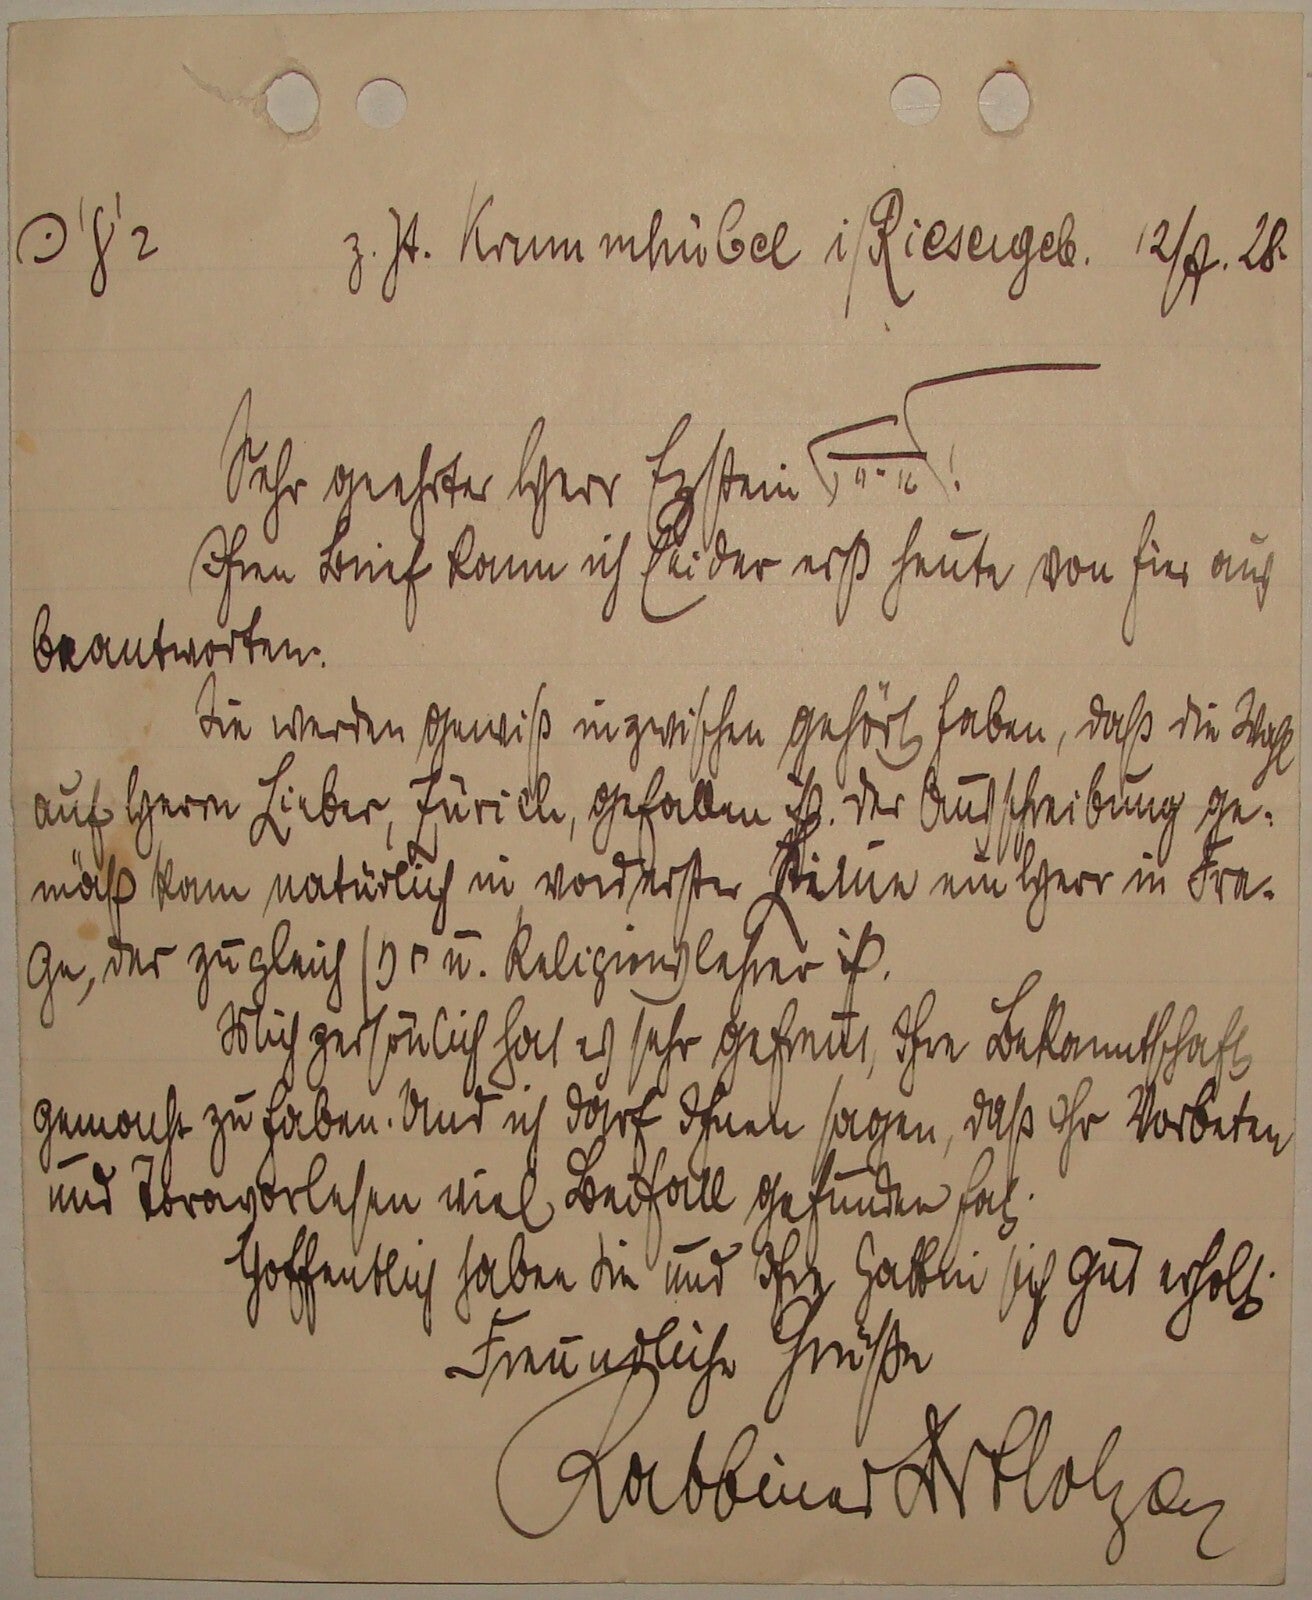 z. Zt. Krummhübel i/Riesengeb. 12/7. 28.
Sehr geehrter Herr Epstein !
Ihren Brief kann ich leider erst heute von hier aus
beantworten.
Sie werden gewiß inzwischen gehört haben, daß die Wahl
auf Herrn Lieber, Zürich, gefallen ist. Der Ausschreibung ge-
mäß kam natürlich in vorderster Linie ein Herr in Fra-
ge, der zugleich u. Religionslehrer ist.
Mich persönlich hat es sehr gefreut, Ihre Bekanntschaft
gemacht zu haben. Und ich darf Ihnen sagen, daß Ihr Vorbeten
und Toravorlesen viel Beifall gefunden hat.
Hoffentlich haben Sie und Ihre Gattin sich gut erholt.
Freundliche Grüße
Rabbiner Dr Holzer